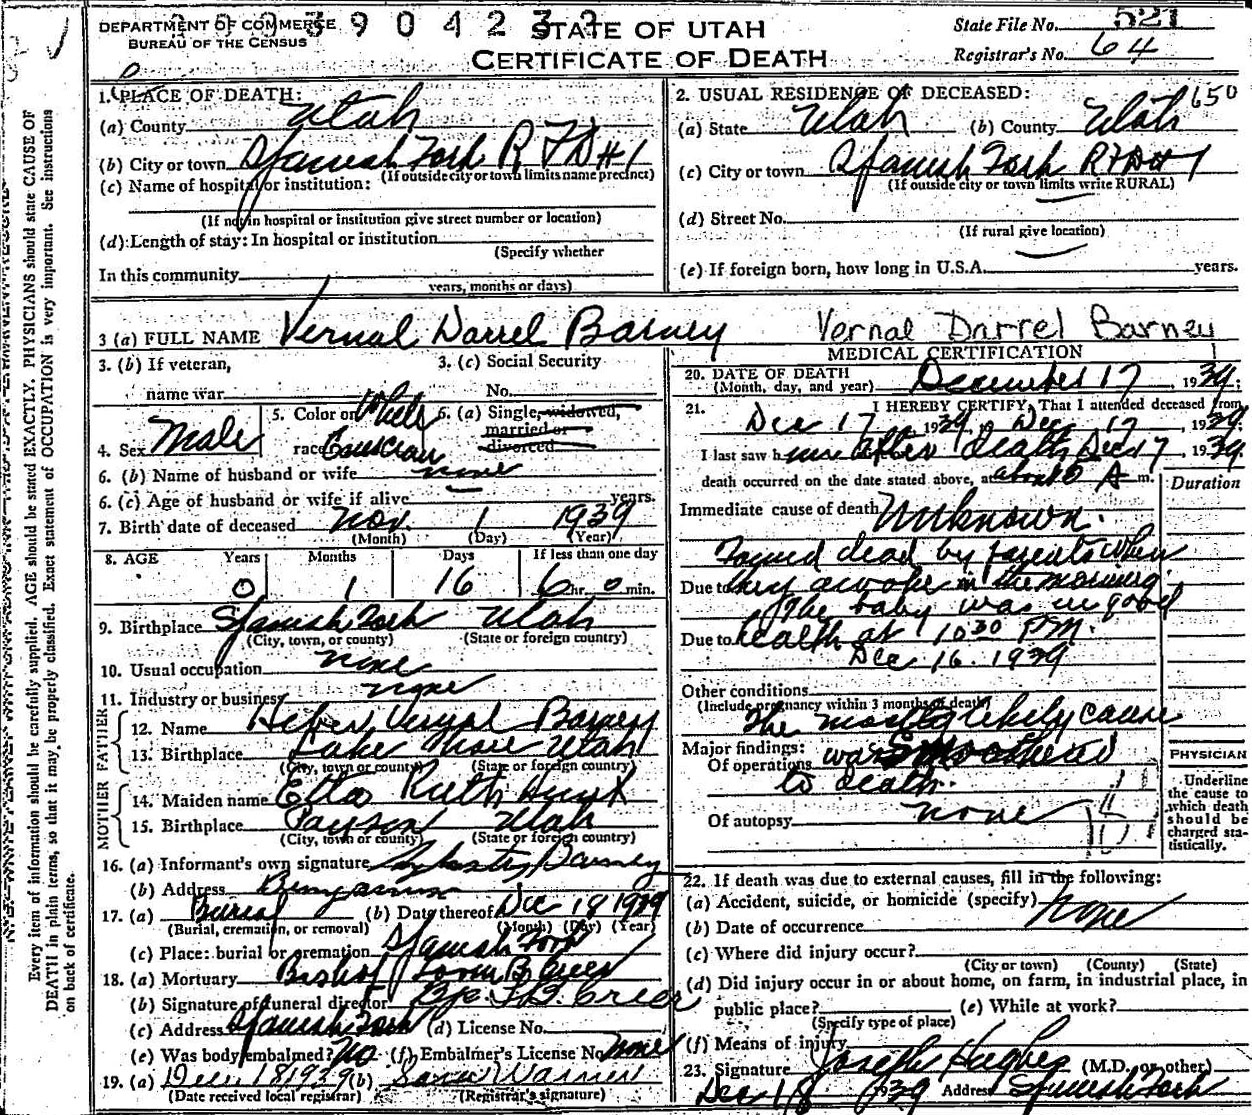 DEPARTMENT OF COMMERCE
BUREAU OF THE CENSUS
STATE OF UTAH
CERTIFICATE OF DEATH
State File No. 521
Registrar's No. 64
Every item of information should be carefully supplied. AGE should be stated EXACTLY. PHYSICIANS should state CAUSE OF
DEATH in plain terms, so that it may be properly classified. Exact statement of OCCUPATION is very important. See instructions
on back of certificate.
1. PLACE OF DEATH:
(a) County Utah
(b) City or town Spanish Fork R F D #1
(If outside city or town limits name precinct)
(c) Name of hospital or institution:
(If not in hospital or institution give street number or location)
(d) Length of stay: In hospital or institution
(Specify whether
In this community
years, months or days)
2. USUAL RESIDENCE OF DECEASED: 650
(a) State Utah (b) County Utah
(c) City or town Spanish Fork RFD #1
(If outside city or town limits write RURAL)
(d) Street No.
(If rural give location)
(e) If foreign born, how long in U.S.A. years.
3 (a) FULL NAME Vernal Darrel Barney Vernal Darrel Barney
3. (b) If veteran,
name war
3. (c) Social Security
No.
4. Sex Male
5. Color or White
race Caucasian
6. (a) Single, widowed,
married or
divorced
6. (b) Name of husband or wife none
6. (c) Age of husband or wife if alive years.
7. Birth date of deceased Nov. 1 1939
(Month) (Day) (Year)
8. AGE Years Months Days If less than one day
0 1 16 6 hr. 0 min.
9. Birthplace Spanish Fork Utah
(City, town, or county) (State or foreign country)
10. Usual occupation none
11. Industry or business none
FATHER
12. Name Heber Vernal Barney
13. Birthplace Lake Shore Utah
(City, town or county) (State or foreign country)
MOTHER
14. Maiden name Etta Ruth Hunt
15. Birthplace Payson Utah
(City, town or county) (State or foreign country)
16. (a) Informant's own signature Barney
(b) Address Benjamin
17. (a) Burial (b) Date thereof Dec 18 1939
(Burial, cremation, or removal) (Month) (Day) (Year)
(c) Place: burial or cremation Spanish Fork
18. (a) Mortuary Bishop
(b) Signature of funeral director
(c) Address Spanish Fork (d) License No.
(e) Was body embalmed? No (f) Embalmer's License No. none
19. (a) Dec. 18 1939 (b) Warner
(Date received local registrar) (Registrar's signature)
MEDICAL CERTIFICATION
20. DATE OF DEATH
(Month, day, and year) December 17, 1939;
21. I HEREBY CERTIFY, That I attended deceased from
Dec 17, 1939, to Dec 17, 1939;
I last saw him after death Dec 17, 1939
death occurred on the date stated above, at about 6 A m.
Duration
Immediate cause of death Unknown.
Found dead by parents when
Due to they awoke in the morning.
The baby was in good
Due to health at 10 30 P.M.
Dec 16. 1939
Other conditions
(Include pregnancy within 3 months of death)
The most likely cause
Major findings:
Of operations was Smothered
to death.
Of autopsy none
PHYSICIAN
Underline
the cause to
which death
should be
charged sta-
tistically.
22. If death was due to external causes, fill in the following:
(a) Accident, suicide, or homicide (specify) none
(b) Date of occurrence
(c) Where did injury occur?
(City or town) (County) (State)
(d) Did injury occur in or about home, on farm, in industrial place, in
public place? (e) While at work?
(Specify type of place)
(f) Means of injury
23. Signature Joseph Hughes (M.D. or other)
Dec 18 1939 Address Spanish Fork